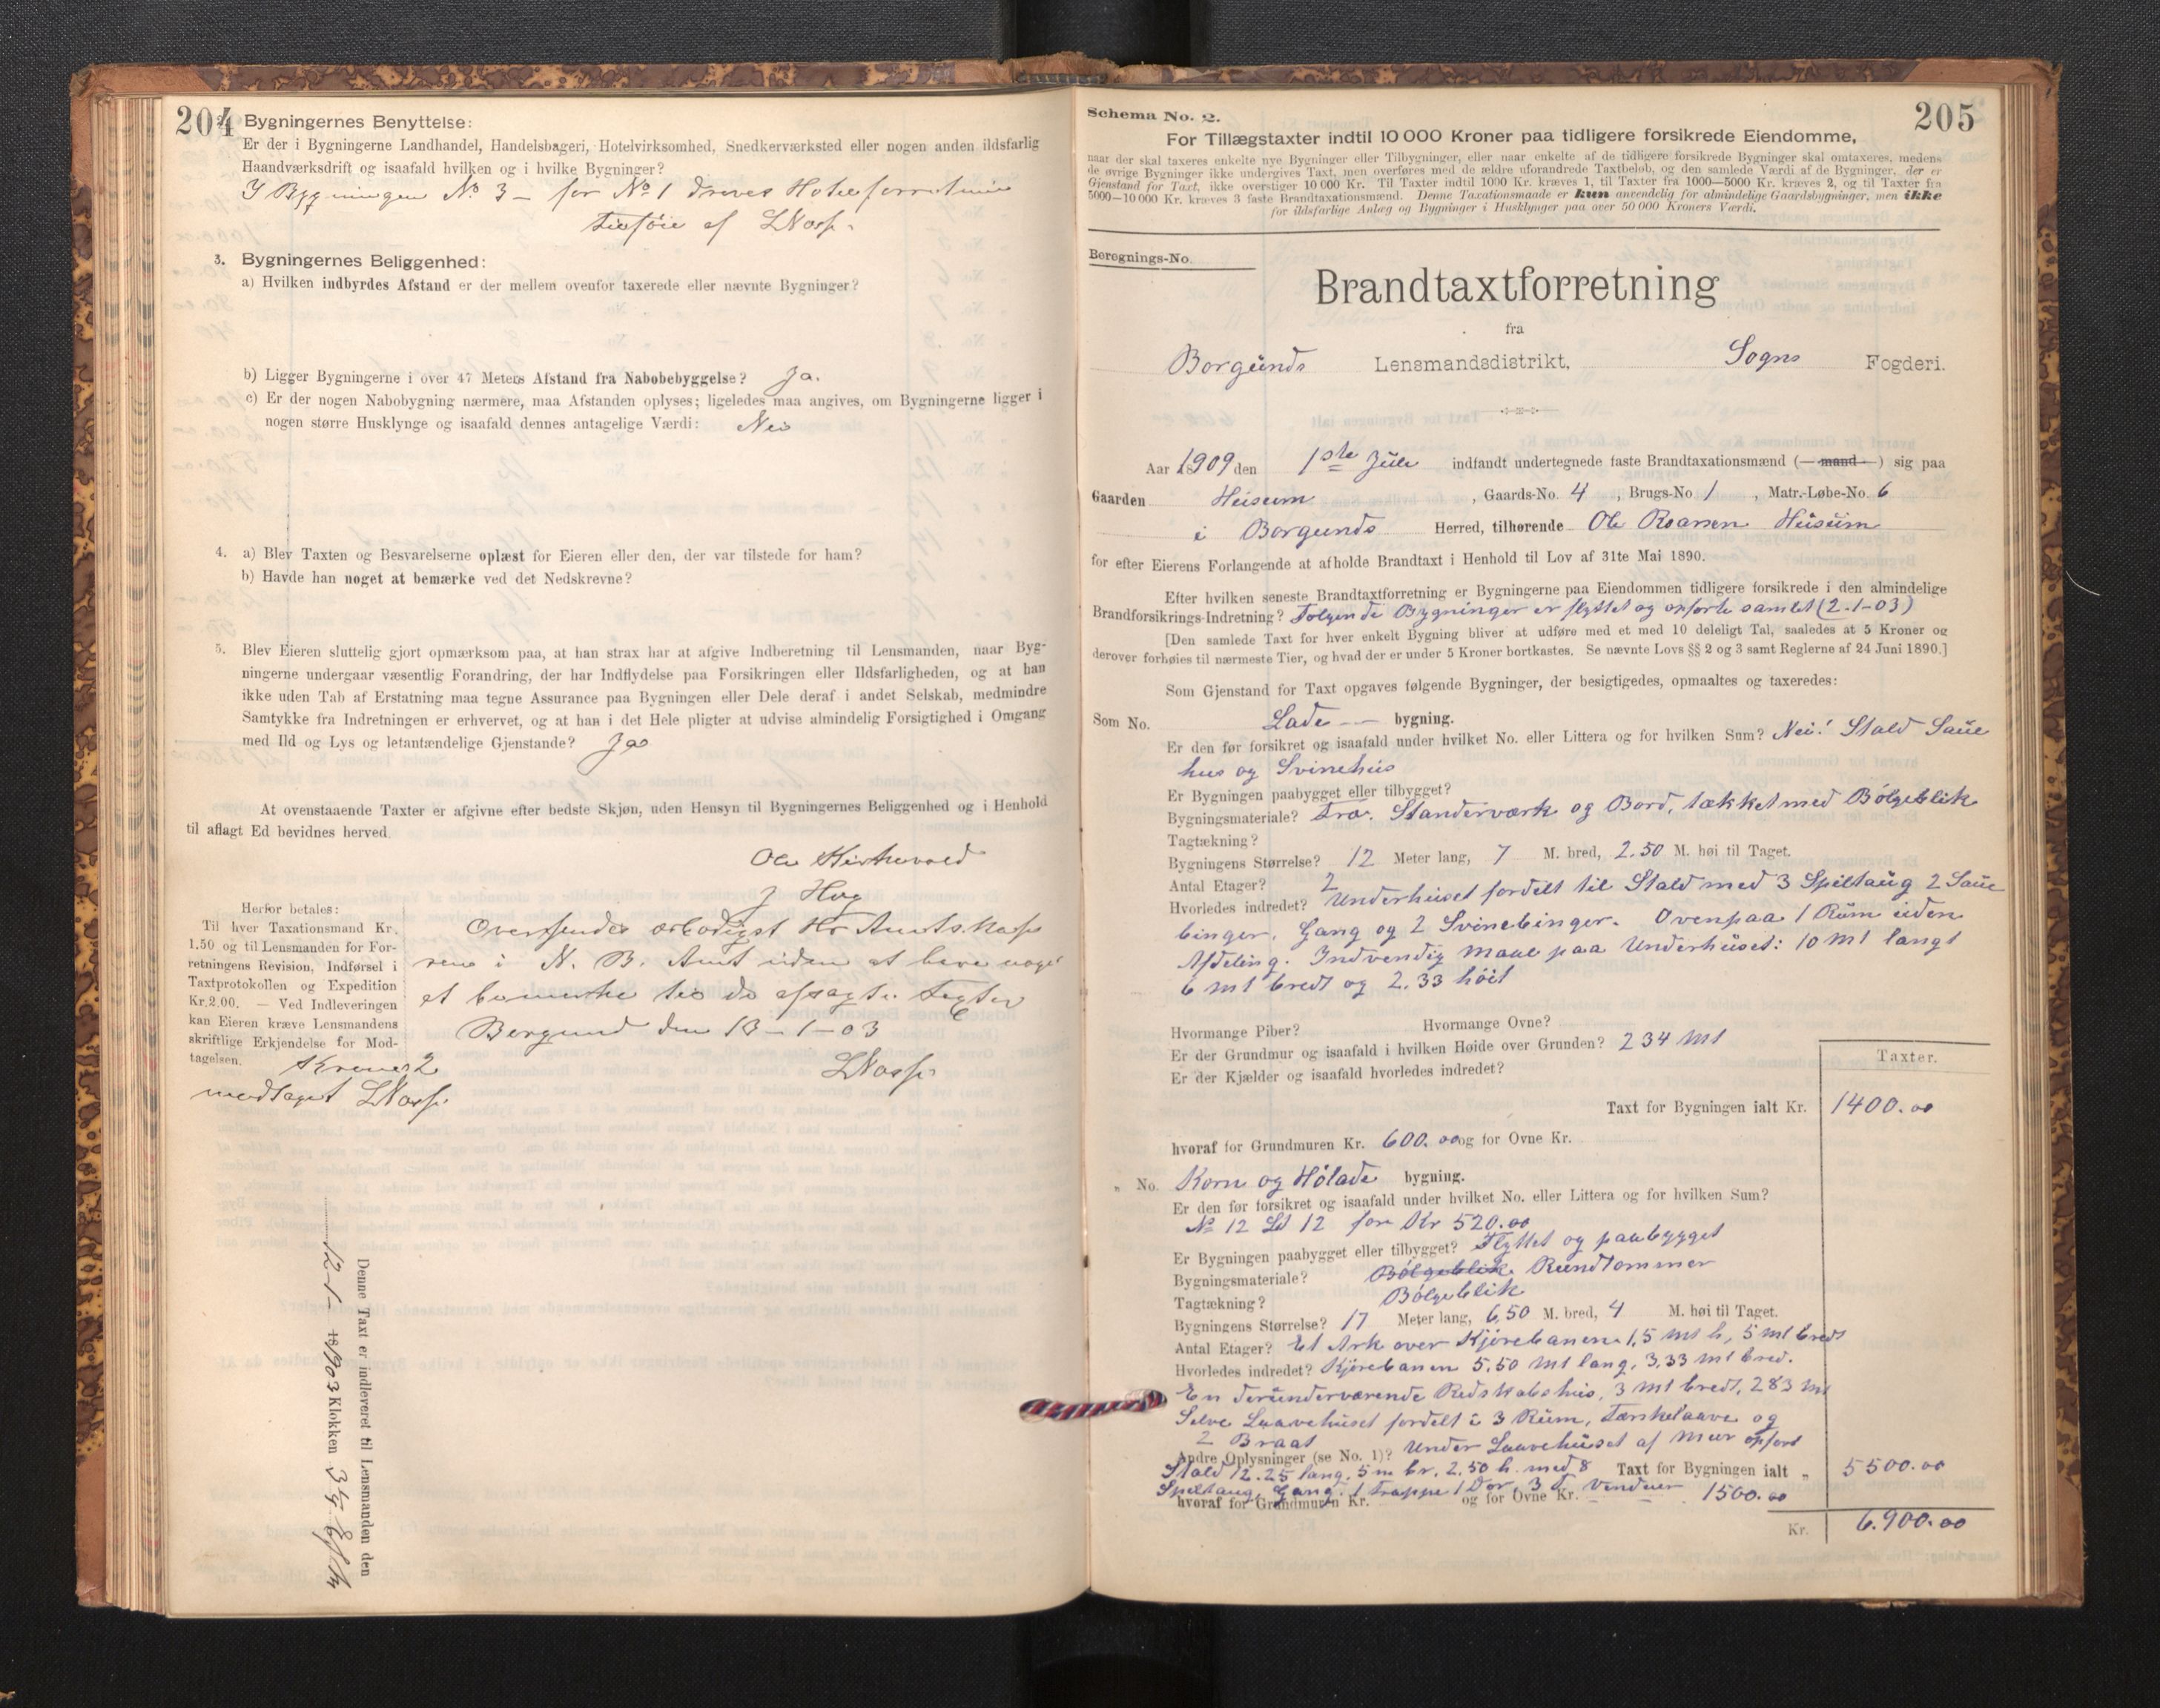 204
2. Bygningernes Benyttelse:
Er der i Bygningerne Landhandel, Handelsbageri, Hotelvirksomhed, Snedkerværksted eller nogen anden ildsfarlig
Haandværksdrift og isaafald hvilken og i hvilke Bygninger?
I Bygningen No 3 – før No 1 drives Hotelforretning
tilføiet af LVosse.
3. Bygningernes Beliggenhed:
a) Hvilken indbyrdes Afstand er der mellem ovenfor taxerede eller nævnte Bygninger?
b) Ligger Bygningerne i over 47 Meters Afstand fra Nabobebyggelse? Ja.
c) Er der nogen Nabobygning nærmere, maa Afstanden oplyses; ligeledes maa angives, om Bygningerne ligger i
nogen større Husklynge og isaafald dennes antagelige Værdi: Nei
4. a) Blev Taxten og Besvarelserne oplæst for Eieren eller den, der var tilstede for ham?
b) Havde han noget at bemærke ved det Nedskrevne?
5. Blev Eieren sluttelig gjort opmærksom paa, at han strax har at afgive Indberetning til Lensmanden, naar Byg-
ningerne undergaar væsentlig Forandring, der har Indflydelse paa Forsikringen eller Ildsfarligheden, og at han
ikke uden Tab af Erstatning maa tegne Assurance paa Bygningen eller Dele deraf i andet Selskab, medmindre
Samtykke fra Indretningen er erhvervet, og at han i det Hele pligter at udvise almindelig Forsigtighed i Omgang
med Ild og Lys og letantændelige Gjenstande? Ja
At ovenstaaende Taxter er afgivne efter bedste Skjøn, uden Hensyn til Bygningernes Beliggenhed og i Henhold
til aflagt Ed bevidnes herved.
Ole Kirkevold
J Hog
Herfor betales:
Til hver Taxationsmand Kr.
1.50 og til Lensmanden for For-
retningens Revision, Indførsel i
Taxtprotokollen og Expedition
Kr. 2.00. — Ved Indleveringen
kan Eieren kræve Lensmandens
skriftlige Erkjendelse for Mod-
tagelsen.
Kroner 2
modtaget LVosse.
Oversendes ærbødigst Hr Amtskasse
reren i N. B. Amt uden at have noget
at bemerke til de afsagte Taxter
Borgund den 13–1–03
LVosse.
Denne Taxt er indleveret til Lensmanden den
12–1– 1903 Klokken 3¼ Eftm
205
Schema No. 2.
For Tillægstaxter indtil 10 000 Kroner paa tidligere forsikrede Eiendomme,
naar der skal taxeres enkelte nye Bygninger eller Tilbygninger, eller naar enkelte af de tidligere forsikrede Bygninger skal omtaxeres, medens
de øvrige Bygninger ikke undergives Taxt, men overføres med de ældre uforandrede Taxtbeløb, og den samlede Værdi af de Bygninger, der er
Gjenstand for Taxt, ikke overstiger 10 000 Kr. Til Taxter indtil 1000 Kr. kræves 1, til Taxter fra 1000—5000 Kr. kræves 2, og til Taxter fra
5000—10 000 Kr. kræves 3 faste Brandtaxationsmænd. Denne Taxationsmaade er kun anvendelig for almindelige Gaardsbygninger, men ikke
for ildsfarlige Anlæg og Bygninger i Husklynger paa over 50 000 Kroners Værdi.
Beregnings-No.
Brandtaxtforretning
fra
Borgunds Lensmandsdistrikt, Sogns Fogderi.
Aar 1909 den 1ste Juli indfandt undertegnede faste Brandtaxationsmænd (—mand—) sig paa
Gaarden Husum, Gaards-No. 4, Brugs-No 1, Matr.-Løbe-No. 6
i Borgunds Herred, tilhørende Ole Roarsen Husum
for efter Eierens Forlangende at afholde Brandtaxt i Henhold til Lov af 31te Mai 1890.
Efter hvilken seneste Brandtaxtforretning er Bygningerne paa Eiendommen tidligere forsikrede i den almindelige
Brandforsikrings-Indretning? Følgende Bygninger er flyttet og opførte samlet (2-1-03)
[Den samlede Taxt for hver enkelt Bygning bliver at udføre med et med 10 deleligt Tal, saaledes at 5 Kroner og
derover forhøies til nærmeste Tier, og hvad der er under 5 Kroner bortkastes. Se nævnte Lovs §§ 2 og 3 samt Reglerne af 24 Juni 1890.]
Som Gjenstand for Taxt opgaves følgende Bygninger, der besigtigedes, opmaaltes og taxeredes:
Som No. Lade — bygning.
Er den før forsikret og isaafald under hvilket No. eller Littera og for hvilken Sum? Nei! Stald Saue
hus og Svinehus
Er Bygningen paabygget eller tilbygget?
Bygningsmateriale? Træ. Standerværk og Bord, tækket med Bølgeblik
Tagtækning?
Bygningens Størrelse? 12 Meter lang, 7 M. bred, 2.50 M. høi til Taget.
Antal Etager? 2
Hvorledes indredet? Underhuset fordelt til Stald med 3 Spiltaug 2 Saue
binger, Gang og 2 Svinebinger. Ovenpaa 1 Rum uden
Afdeling. Indvendig Maal paa Underhuset: 10 mt langt
6 mt bredt og 2.33 høit
Hvormange Piber? Hvormange Ovne?
Er der Grundmur og isaafald i hvilken Høide over Grunden? 234 mt
Er der Kjælder og isaafald hvorledes indredet?
Taxter.
Taxt for Bygningen ialt Kr. 1400.00
hvoraf for Grundmuren Kr. 600.00 og for Ovne Kr.
„ No. Korn og Hølade bygning.
Er den før forsikret og isaafald under hvilket No. eller Littera og for hvilken Sum?
No 12 Lit 12 for Kr 520.00
Er Bygningen paabygget eller tilbygget? Flyttet og paabygget
Bygningsmateriale? Bølgeblik Rundtømmer
Tagtækning? Bølgeblik
Bygningens Størrelse? 17 Meter lang, 6,50 M. bred, 4 M. høi til Taget.
Antal Etager? Et Ark over Kjørebanen 1,5 mt h, 5 mt bredt
Hvorledes indredet? Kjørebanen 5,50 mt lang, 3,33 mt bred.
En derunderværende Redskabshus, 3 mt bredt, 283 mt
Selve Laavehuset fordelt i 3 Rum, Tærskelaave og
2 Braat
Andre Oplysninger (se No. 1)? Under Laavehuset af Mur opført
Stald 12.25 lang, 5 m br. 2.50 h. med 8 Taxt for Bygningen ialt „ 5500.00
Spiltaug, Gang, 1 Trappe 1 Dør, 3 Vinduer
hvoraf for Grundmuren Kr. og for Ovne Kr. 1500.00
Kr. 6.900.00